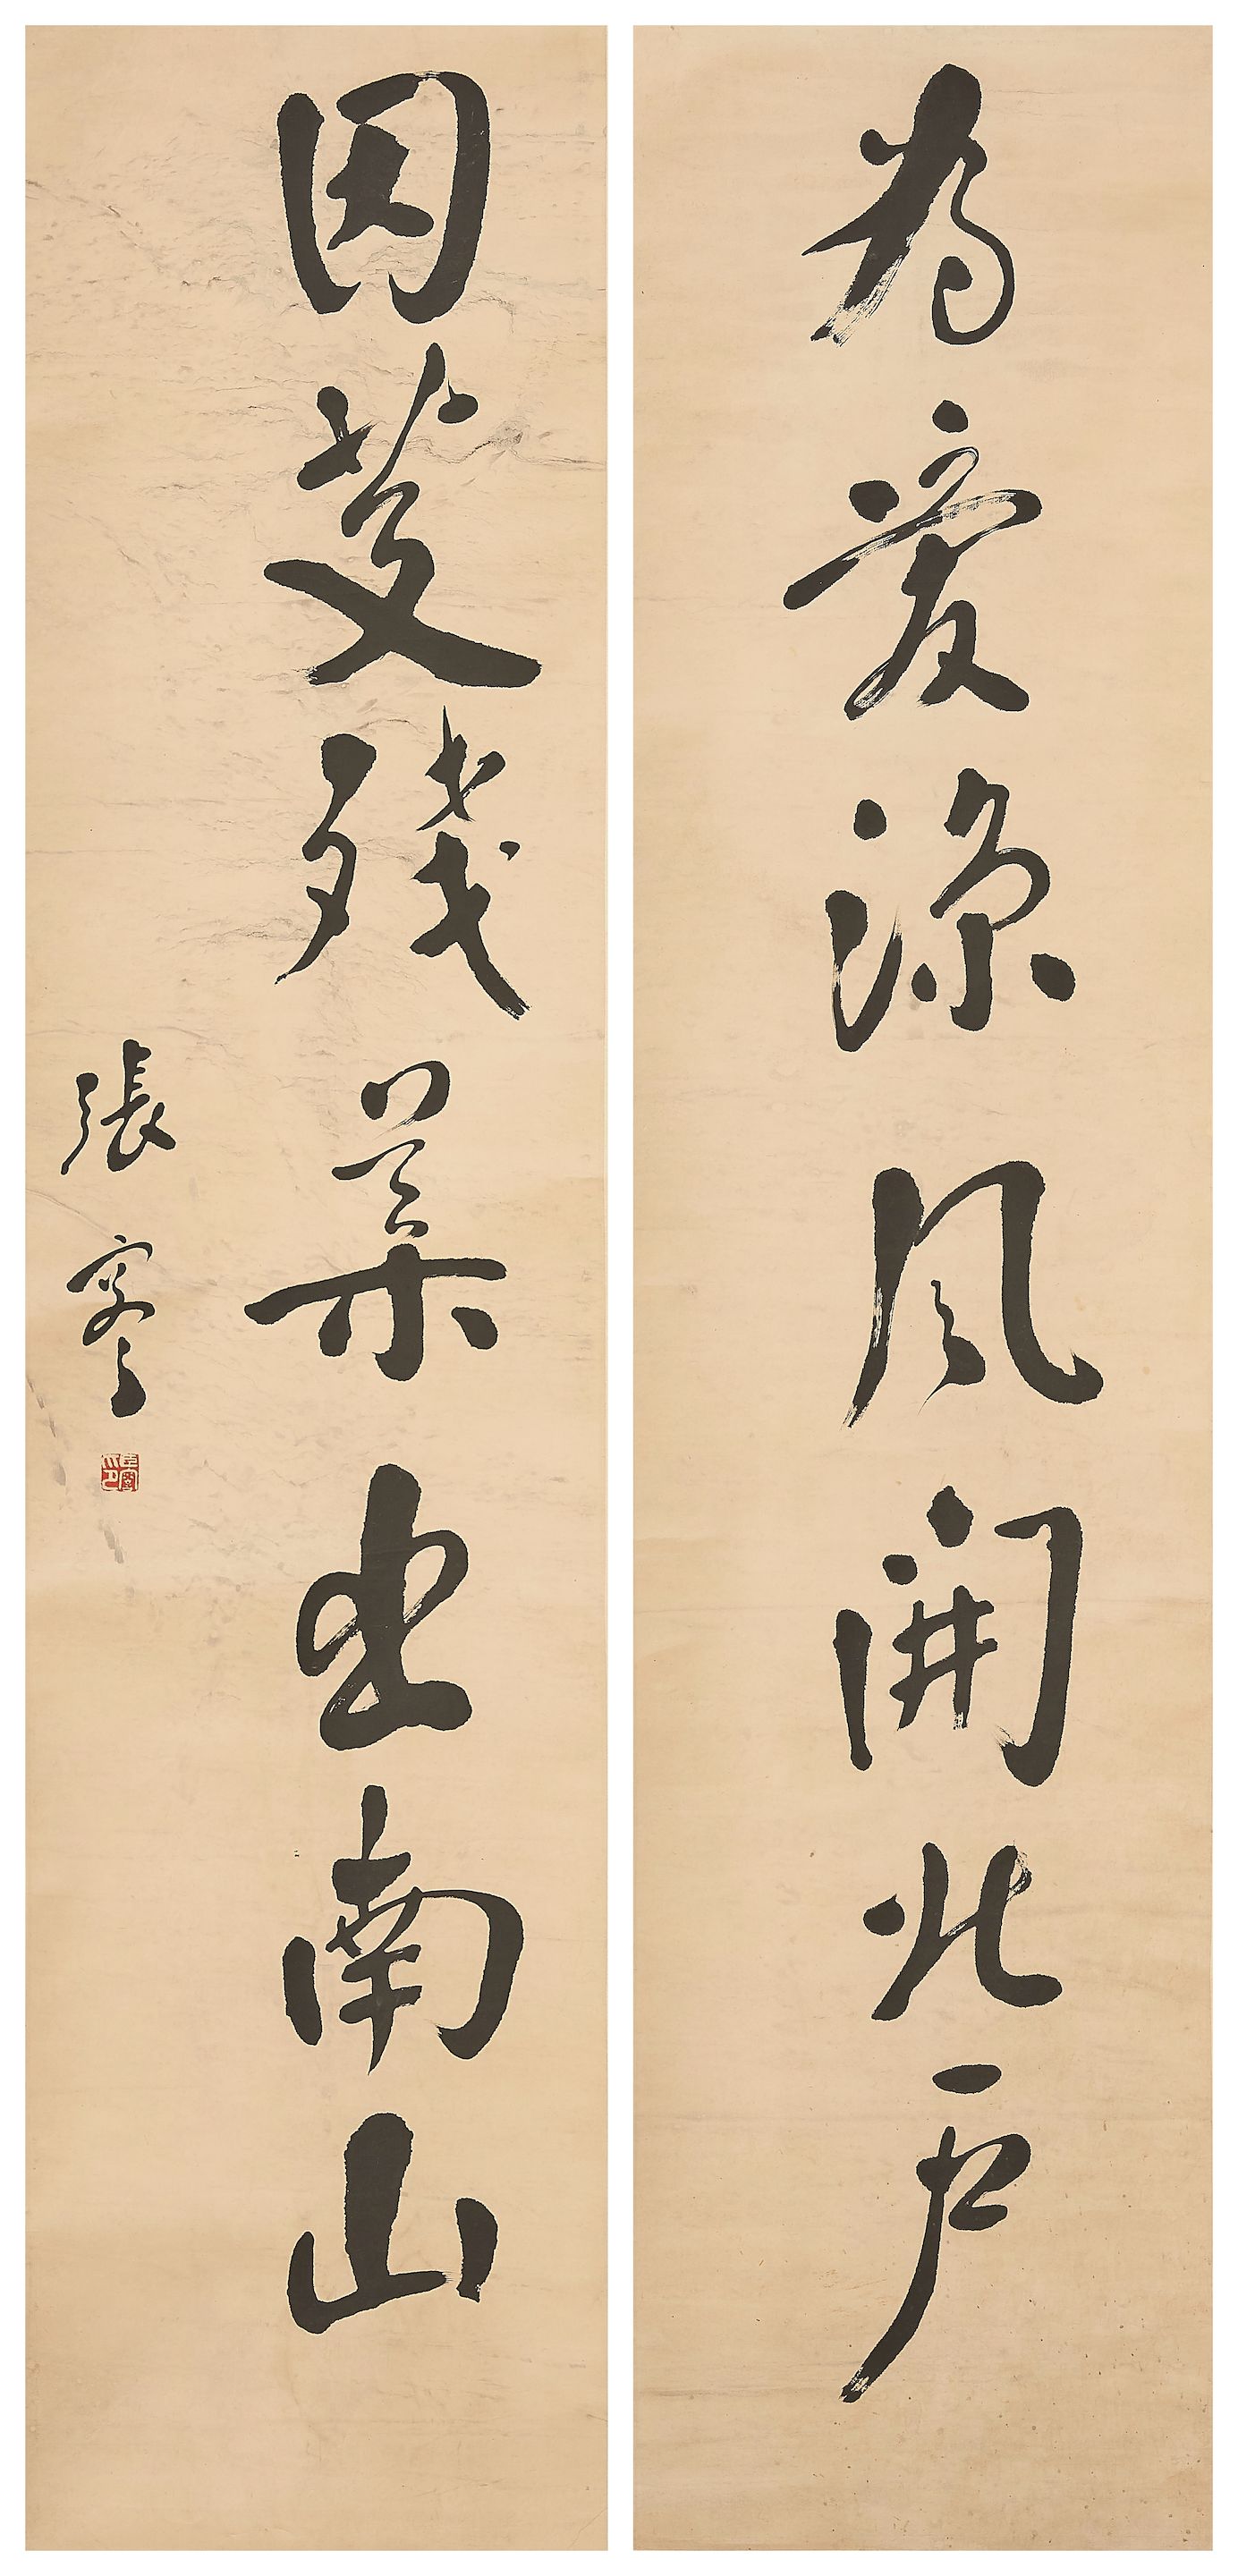 為愛涼風開北戶
因芟殘葉出南山
張謇